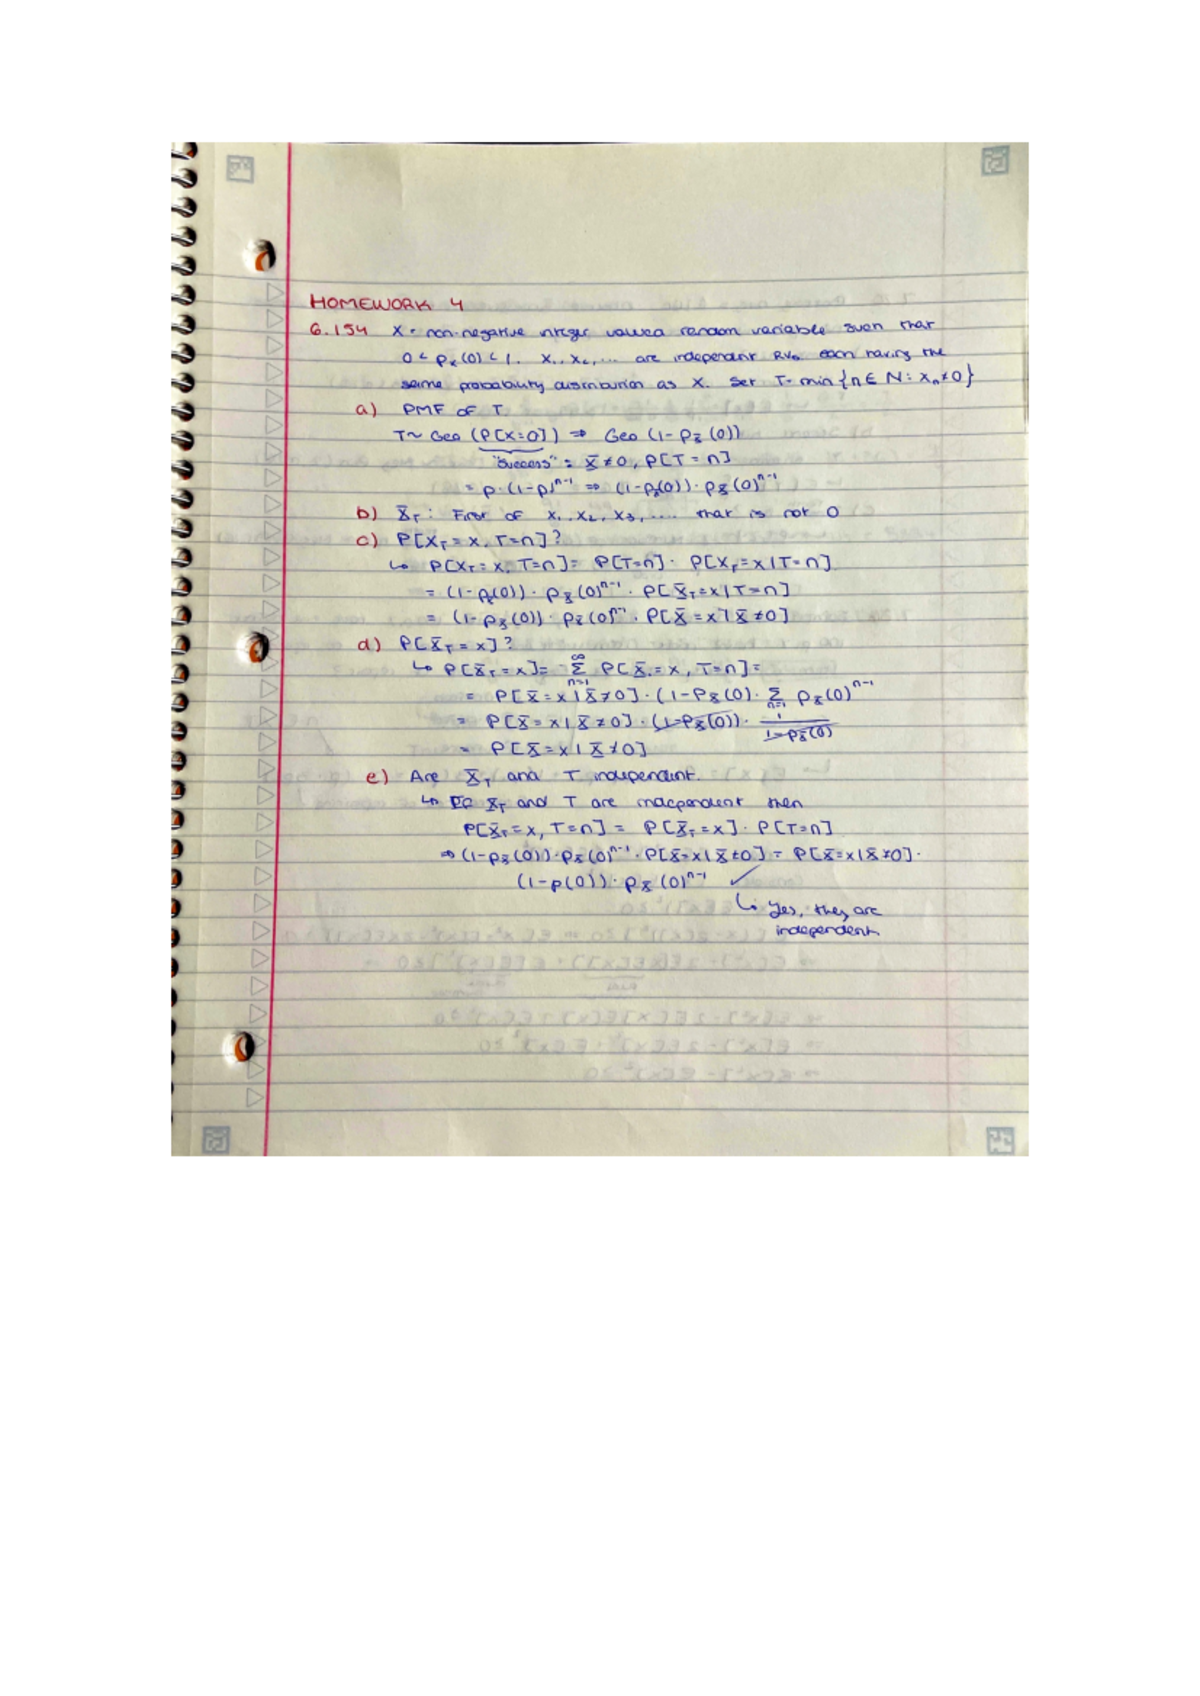 HOMEWORK 4
6.154 X = non-negative integer valued random variable such that
0 < px(0) < 1. X1, X2, ... are independent RVs each having the
same probability distribution as X. Set T= min {n ∈ N: Xn≠0}
a) PMF OF T
T~ Geo (P[X=0]) ⇒ Geo (1-px(0))
"success" = X ≠ 0, P[T = n]
= p·(1-p)^n-1 ⇒ (1-px(0))·px(0)^n-1
b) XT: First of X1, X2, X3, .... that is not 0
c) P[XT = x, T=n]?
↳ P[XT = x, T=n] = P[T=n]· P[XT=x|T=n]
= (1-px(0))· px(0)^n-1 · P[XT=x|T=n]
= (1-px(0))· px(0)^n-1 · P[X=x|X≠0]
d) P[XT = x]?
↳ P[XT = x] = ∞ Σ n=1 P[X = x, T=n] =
= P[X=x|X≠0]·(1-Px(0)· Σ n=1 px(0)^n-1
= P[X=x|X≠0]·(1-Px(0))· 1/1-px(0)
= P[X=x|X≠0]
e) Are XT and T independent.
↳ XT and T are independent then
P[XT=x, T=n] = P[XT=x]· P[T=n]
⇒ (1-px(0))·px(0)^n-1 · P[X=x|X≠0] = P[X=x|X≠0]·
(1-p(0))·px(0)^n-1 ✓
↳ Yes, they are
independent.